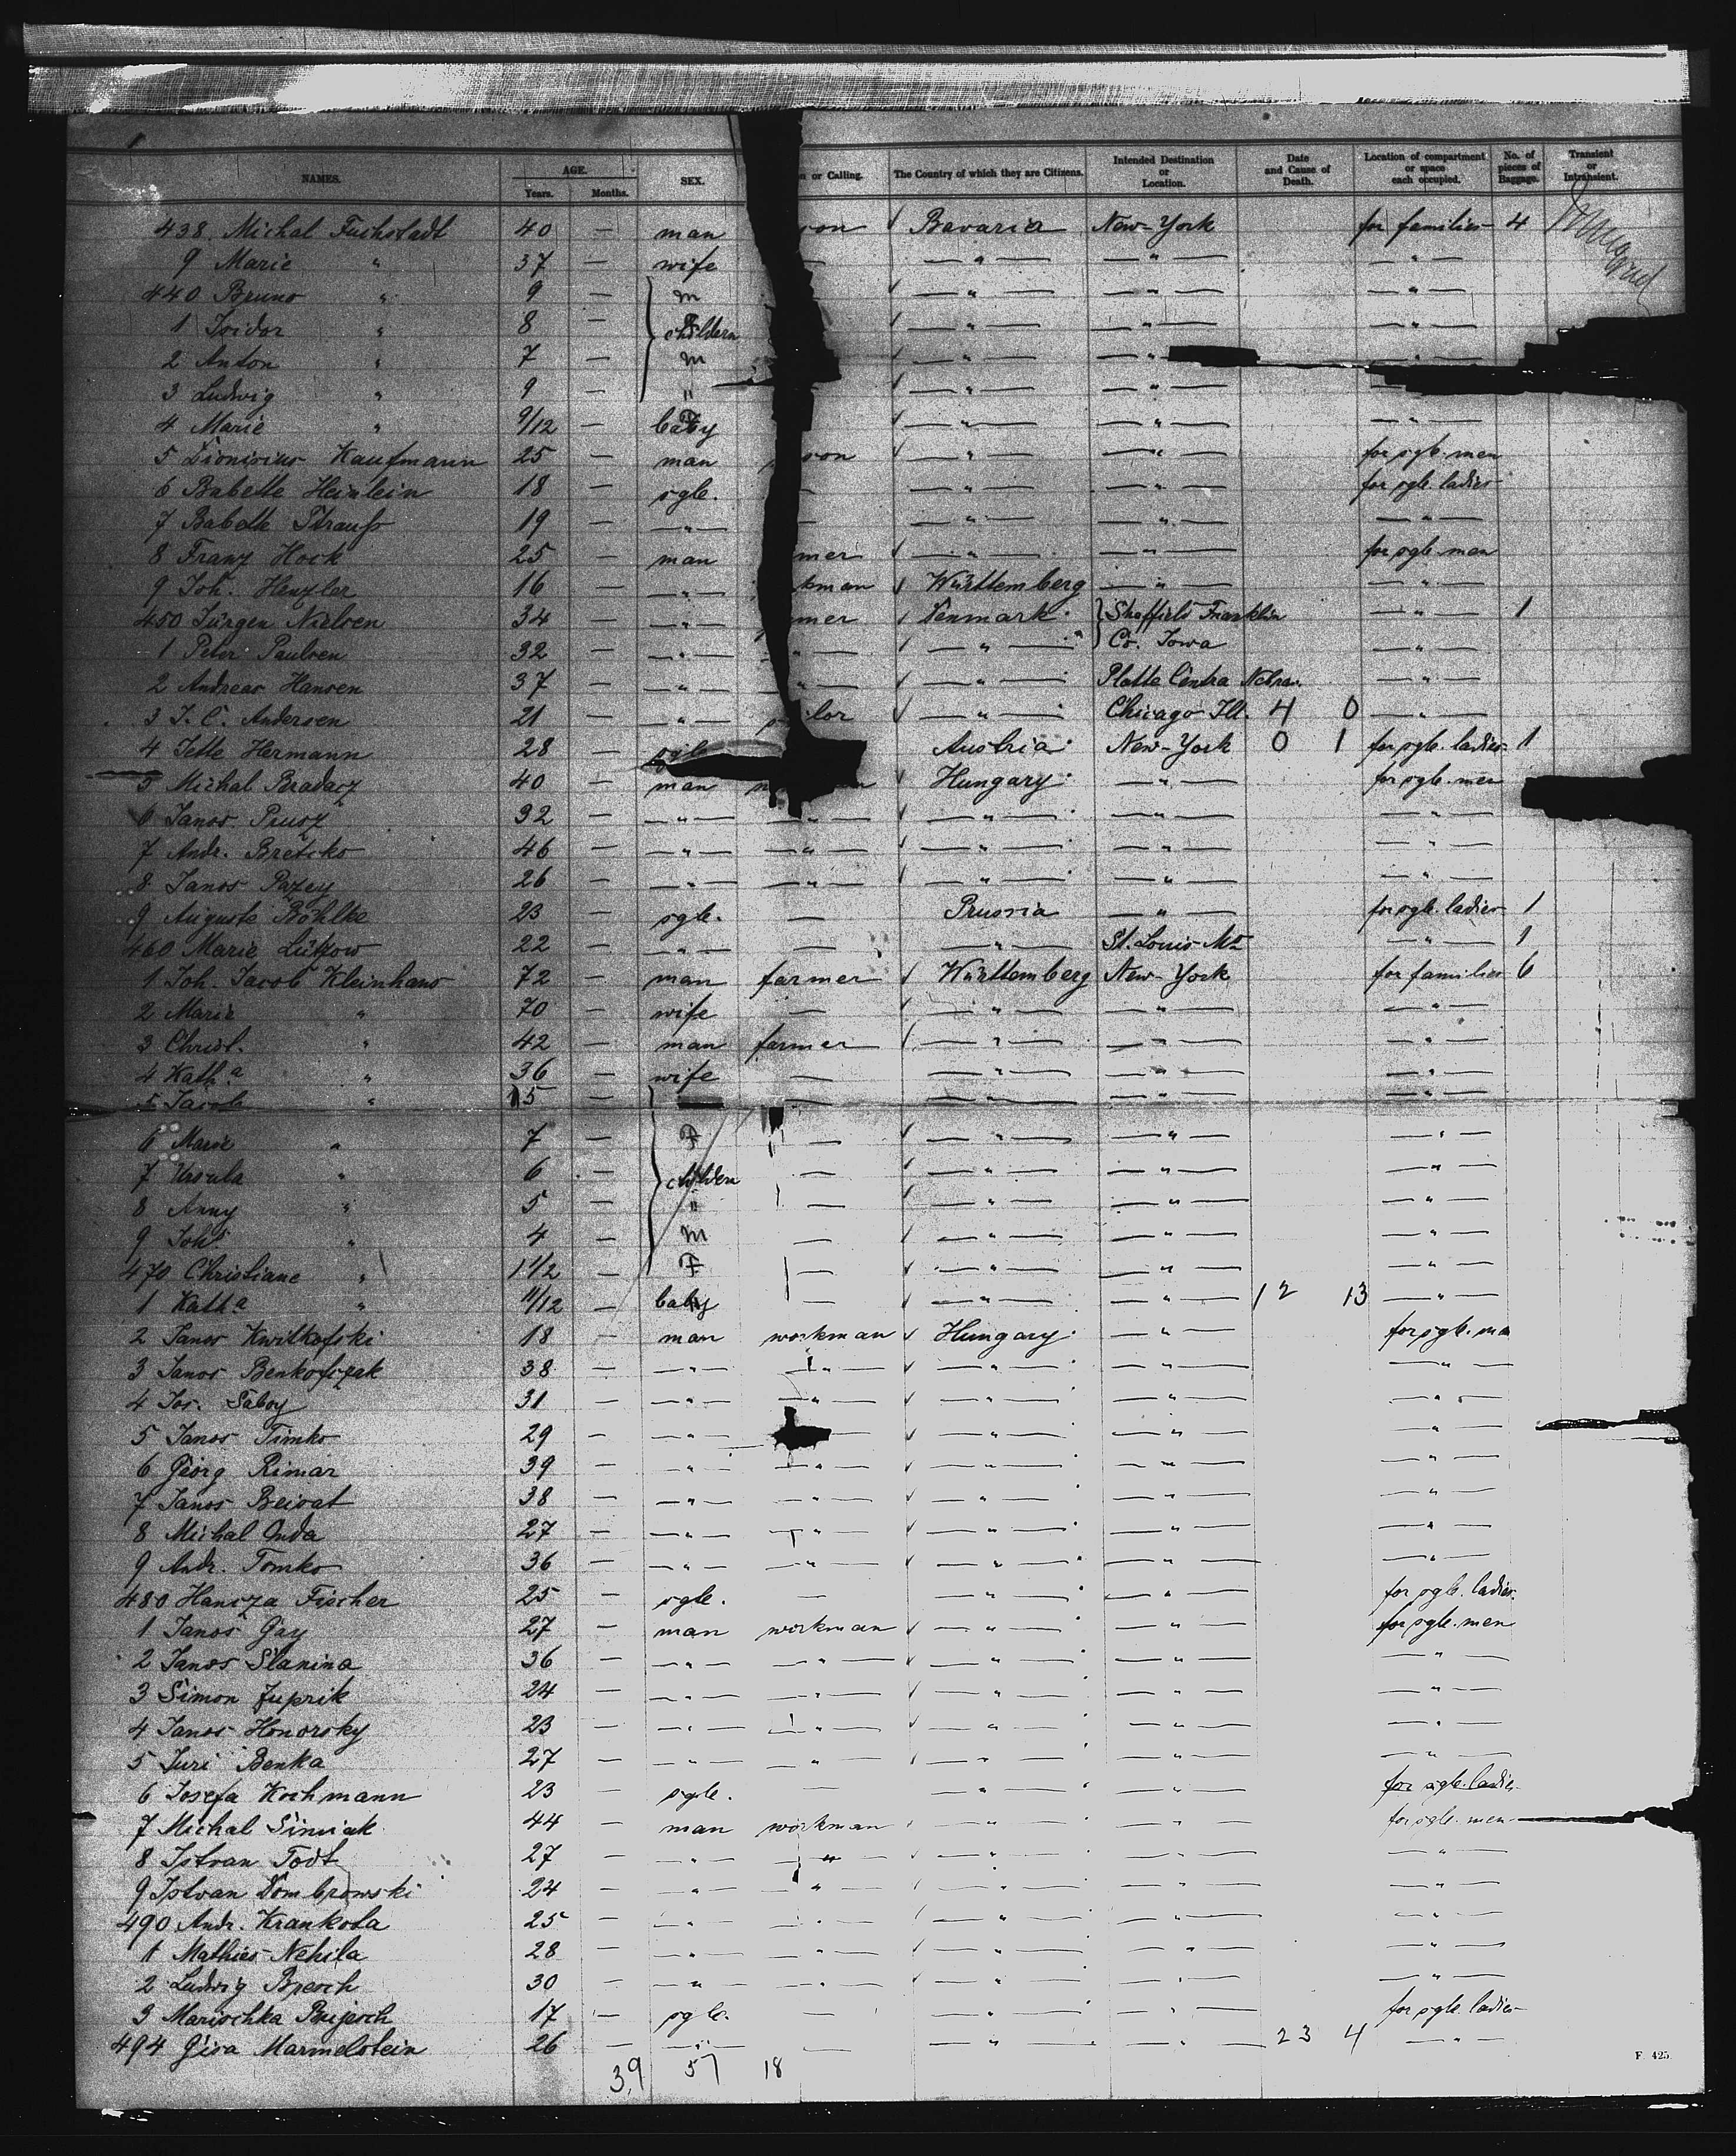 NAMES. AGE. Years. Months. SEX. n or Calling. The Country of which they are Citizens. Intended Destination or Location. Date and Cause of Death. Location of compartment or space each occupied. No. of pieces of Baggage. Transient or Intransient.
438. Michal Fuchstadt 40 — man son ✓ Bavaria New-York for families 4
9 Marie " 37 — wife — — " — — " — — " —
440 Bruno " 9 — m ✓ — " — — " — — " —
1 Isidor " 8 — children ✓ — " — — " — — " —
2 Anton " 7 — m ✓ — " — — " — " —
3 Ludwig " 9 — " ✓ — " — — " —
4 Marie " 9/12 — baby ✓ — " — — " — — " —
5 Dionisius Kaufmann 25 — man son ✓ — " — — " — for sgle. men
6 Babette Heinlein 18 — sgle. — — " — — " — for sgle. ladies
7 Babette Strauß 19 — — " — — — " — — " — — " —
8 Franz Hock 25 — man mer ✓ — " — — " — for sgle. men
9 Joh. Henzler 16 — — " — kman ✓ Württemberg — " — — " —
450 Jürgen Nielsen 34 — — " — mer ✓ Denmark Sheffield Franklin — " — 1
1 Peter Paulsen 32 — — " — " — ✓ — " — Co. Iowa — " —
2 Andreas Hansen 37 — — " — " — ✓ — " — Platte Centra Nebra. — " —
3 J. C. Andersen 21 — — " — ilor ✓ — " — Chicago Ill. 4 0 — " —
4 Jette Hermann 28 — sgle Austria New-York 0 1 for sgle. ladies 1
5 Michal Peradacz 40 — man n Hungary — " — for sgle. men
6 Janos Prusz 32 — — " — — " — ✓ — " — — " — — " —
7 Andr. Bretcko 46 — — " — — " — ✓ — " — — " — — " —
8 Janos Pazey 26 — — " — — " — ✓ — " — — " — — " —
9 Auguste Böhlke 23 — sgle. — Prussia — " — for sgle. ladies 1
460 Marie Lützow 22 — — " — — — " — St. Louis Mo — " — 1
1 Joh. Jacob Kleinhans 72 — man farmer ✓ Württemberg New-York for families 6
2 Marie " 70 — wife — ✓ — " — — " — — " —
3 Christ. " 42 — man farmer ✓ — " — — " — — " —
4 Katha " 36 — wife — — " — — " — — " —
5 Jacob " 15 — — — " — — " — — " —
6 Marie " 7 — F — ✓ — " — — " — — " —
7 Ursula " 6 — children — ✓ — " — — " — — " —
8 Anny " 5 — " — ✓ — " — — " — — " —
9 Johs " 4 — m — ✓ — " — — " — — " —
470 Christiane " 1 1/2 — F — ✓ — " — — " — — " —
1 Katha " 11/12 — baby — ✓ — " — — " — 12 13 — " —
2 Janos Kwitkofski 18 — man workman ✓ Hungary — " — for sgle. men
3 Janos Benkofszak 38 — — " — — " — ✓ — " — — " — — " —
4 Jos. Saboy 31 — — " — — " — ✓ — " — — " — — " —
5 Janos Timko 29 — — " — — ✓ — " — — " — — " —
6 Georg Rimar 39 — — " — — " — ✓ — " — — " — — " —
7 Janos Beirat 38 — — " — — " — ✓ — " — — " — — " —
8 Michal Onda 27 — — " — — " — ✓ — " — — " — — " —
9 Andr. Tomko 36 — — " — — " — ✓ — " — — " — — " —
480 Hancza Fischer 25 — sgle. — — " — — " — for sgle. ladies.
1 Janos Gay 27 — man workman ✓ — " — — " — for sgle. men
2 Janos Slanina 36 — — " — — " — ✓ — " — — " — — " —
3 Simon Juprik 24 — — " — — " — ✓ — " — — " — — " —
4 Janos Honorsky 23 — — " — — " — ✓ — " — — " — — " —
5 Juri Benka 27 — — " — — " — ✓ — " — — " — — " —
6 Josefa Kochmann 23 — sgle. — — " — — " — for sgle. ladies
7 Michal Siniak 44 — man workman ✓ — " — — " — for sgle. men
8 Istvan Todt 27 — — " — — " — — " — — " — — " —
9 Istvan Dombrowski 24 — — " — — " — — " — — " — — " —
490 Andr. Krankota 25 — — " — — " — — " — — " — — " —
1 Mathies Nehila 28 — — " — — " — — " — — " — — " —
2 Ludwig Bresch 30 — — " — — " — — " — — " — — " —
3 Marischka 17 — sgle. — — " — — " — for sgle. ladies
494 Gisa Marmelstein 26 — — " — — — " — — " — 23 4 — " —
39 57 18
F. 425.